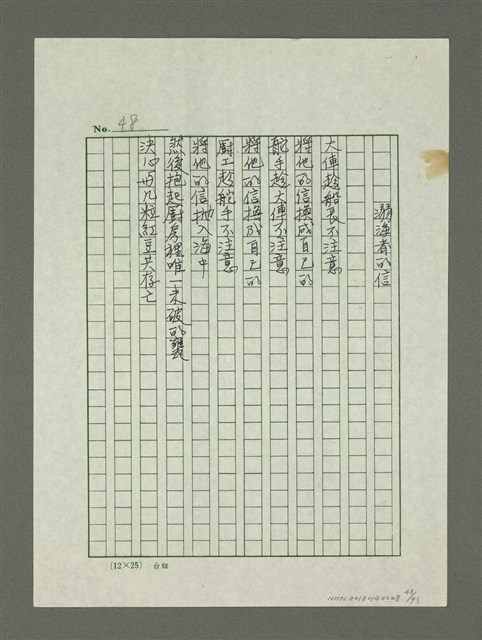 No. 48
溺海者的信
大俥趁船長不注意
將他的信換成自己的
舵手趁大俥不注意
將他的信換成自己的
廚工趁舵手不注意
將他的信拋入海中
然後抱起廚房裡唯一未破的甕
決心與几粒紅豆共存亡
(12×25) 台組